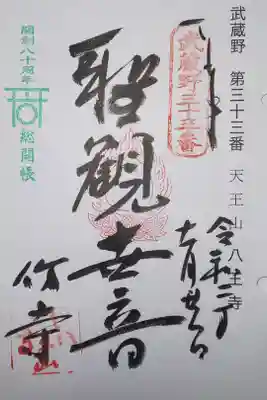 武蔵野 第三十三番 天王山 八王寺
令和二年
十月廿八日
武蔵野三十三番
聖観世音
竹寺
開創八十周年
総開帳